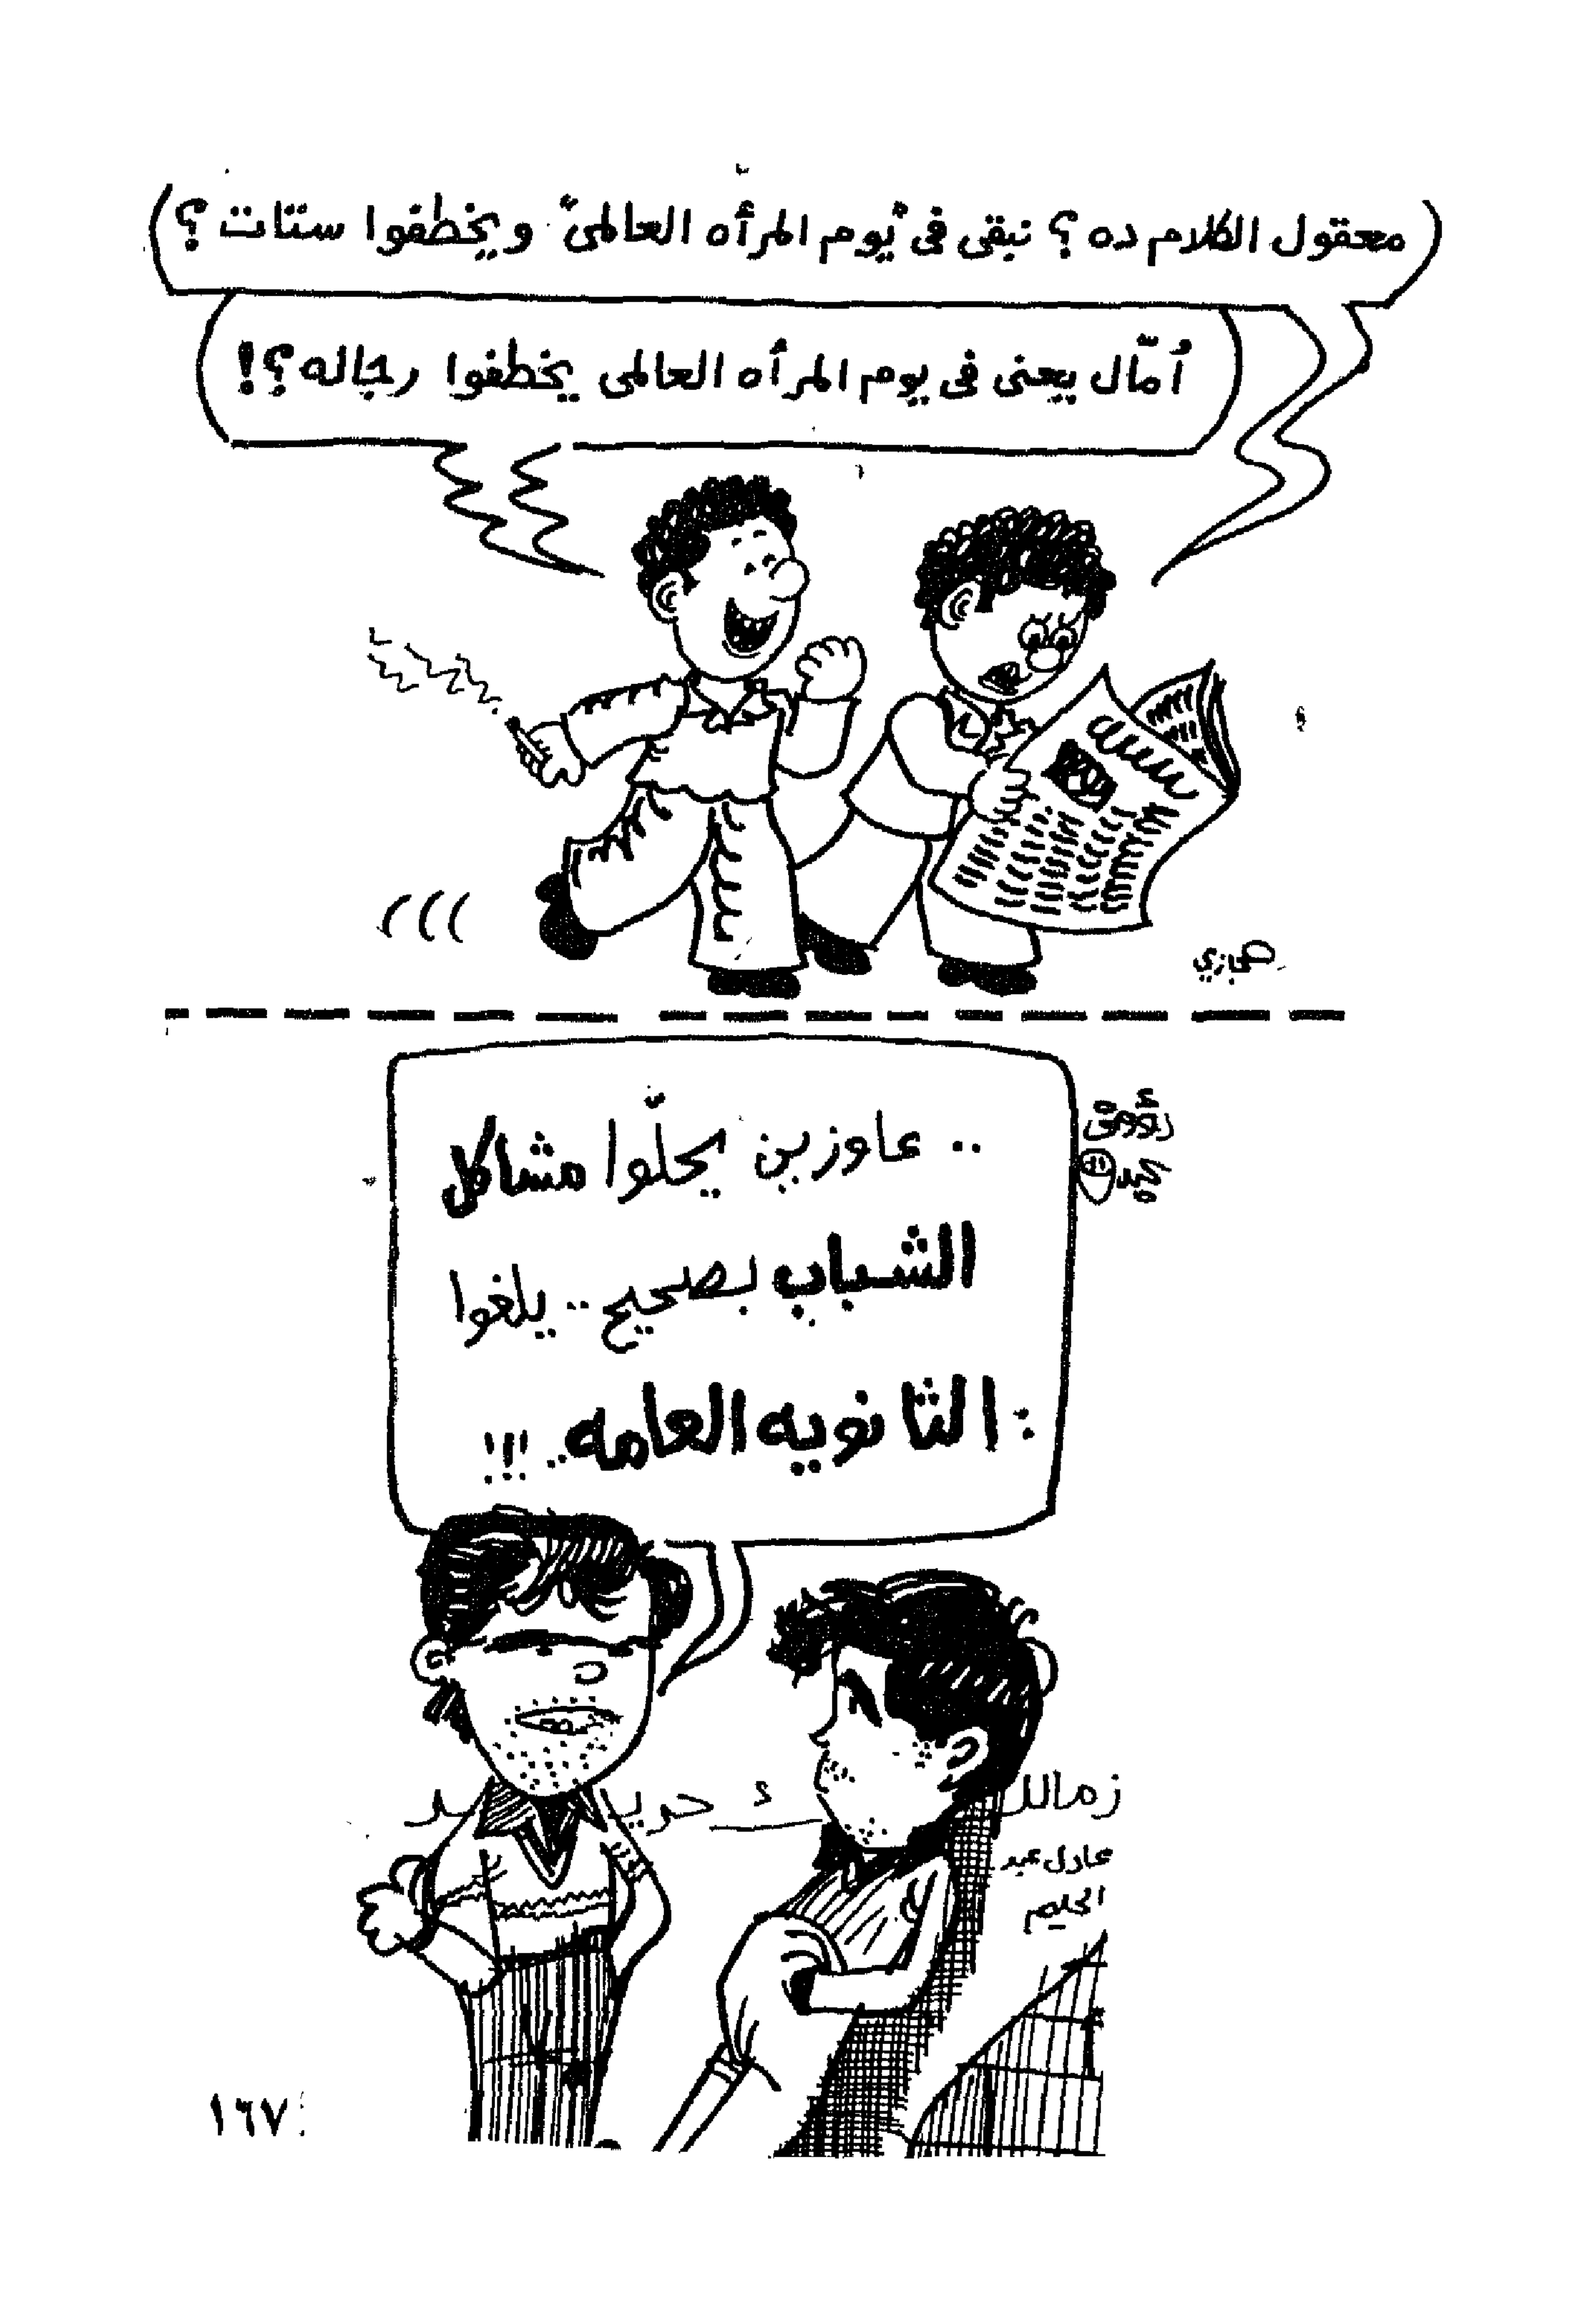 معقول الكلام ده؟ نبقى فى "يوم المرأه العالمى" ويخطفوا ستات؟
أمّال يعنى فى يوم المرأه العالمى يخطفوا رجاله؟!
حجازي
.. عاوزين يحلّوا مشاكل
الشباب بصحيح .. يلغوا
الثانويه العامه .. !!!
زمالك
عادل عبد
الحليم
١٦٧